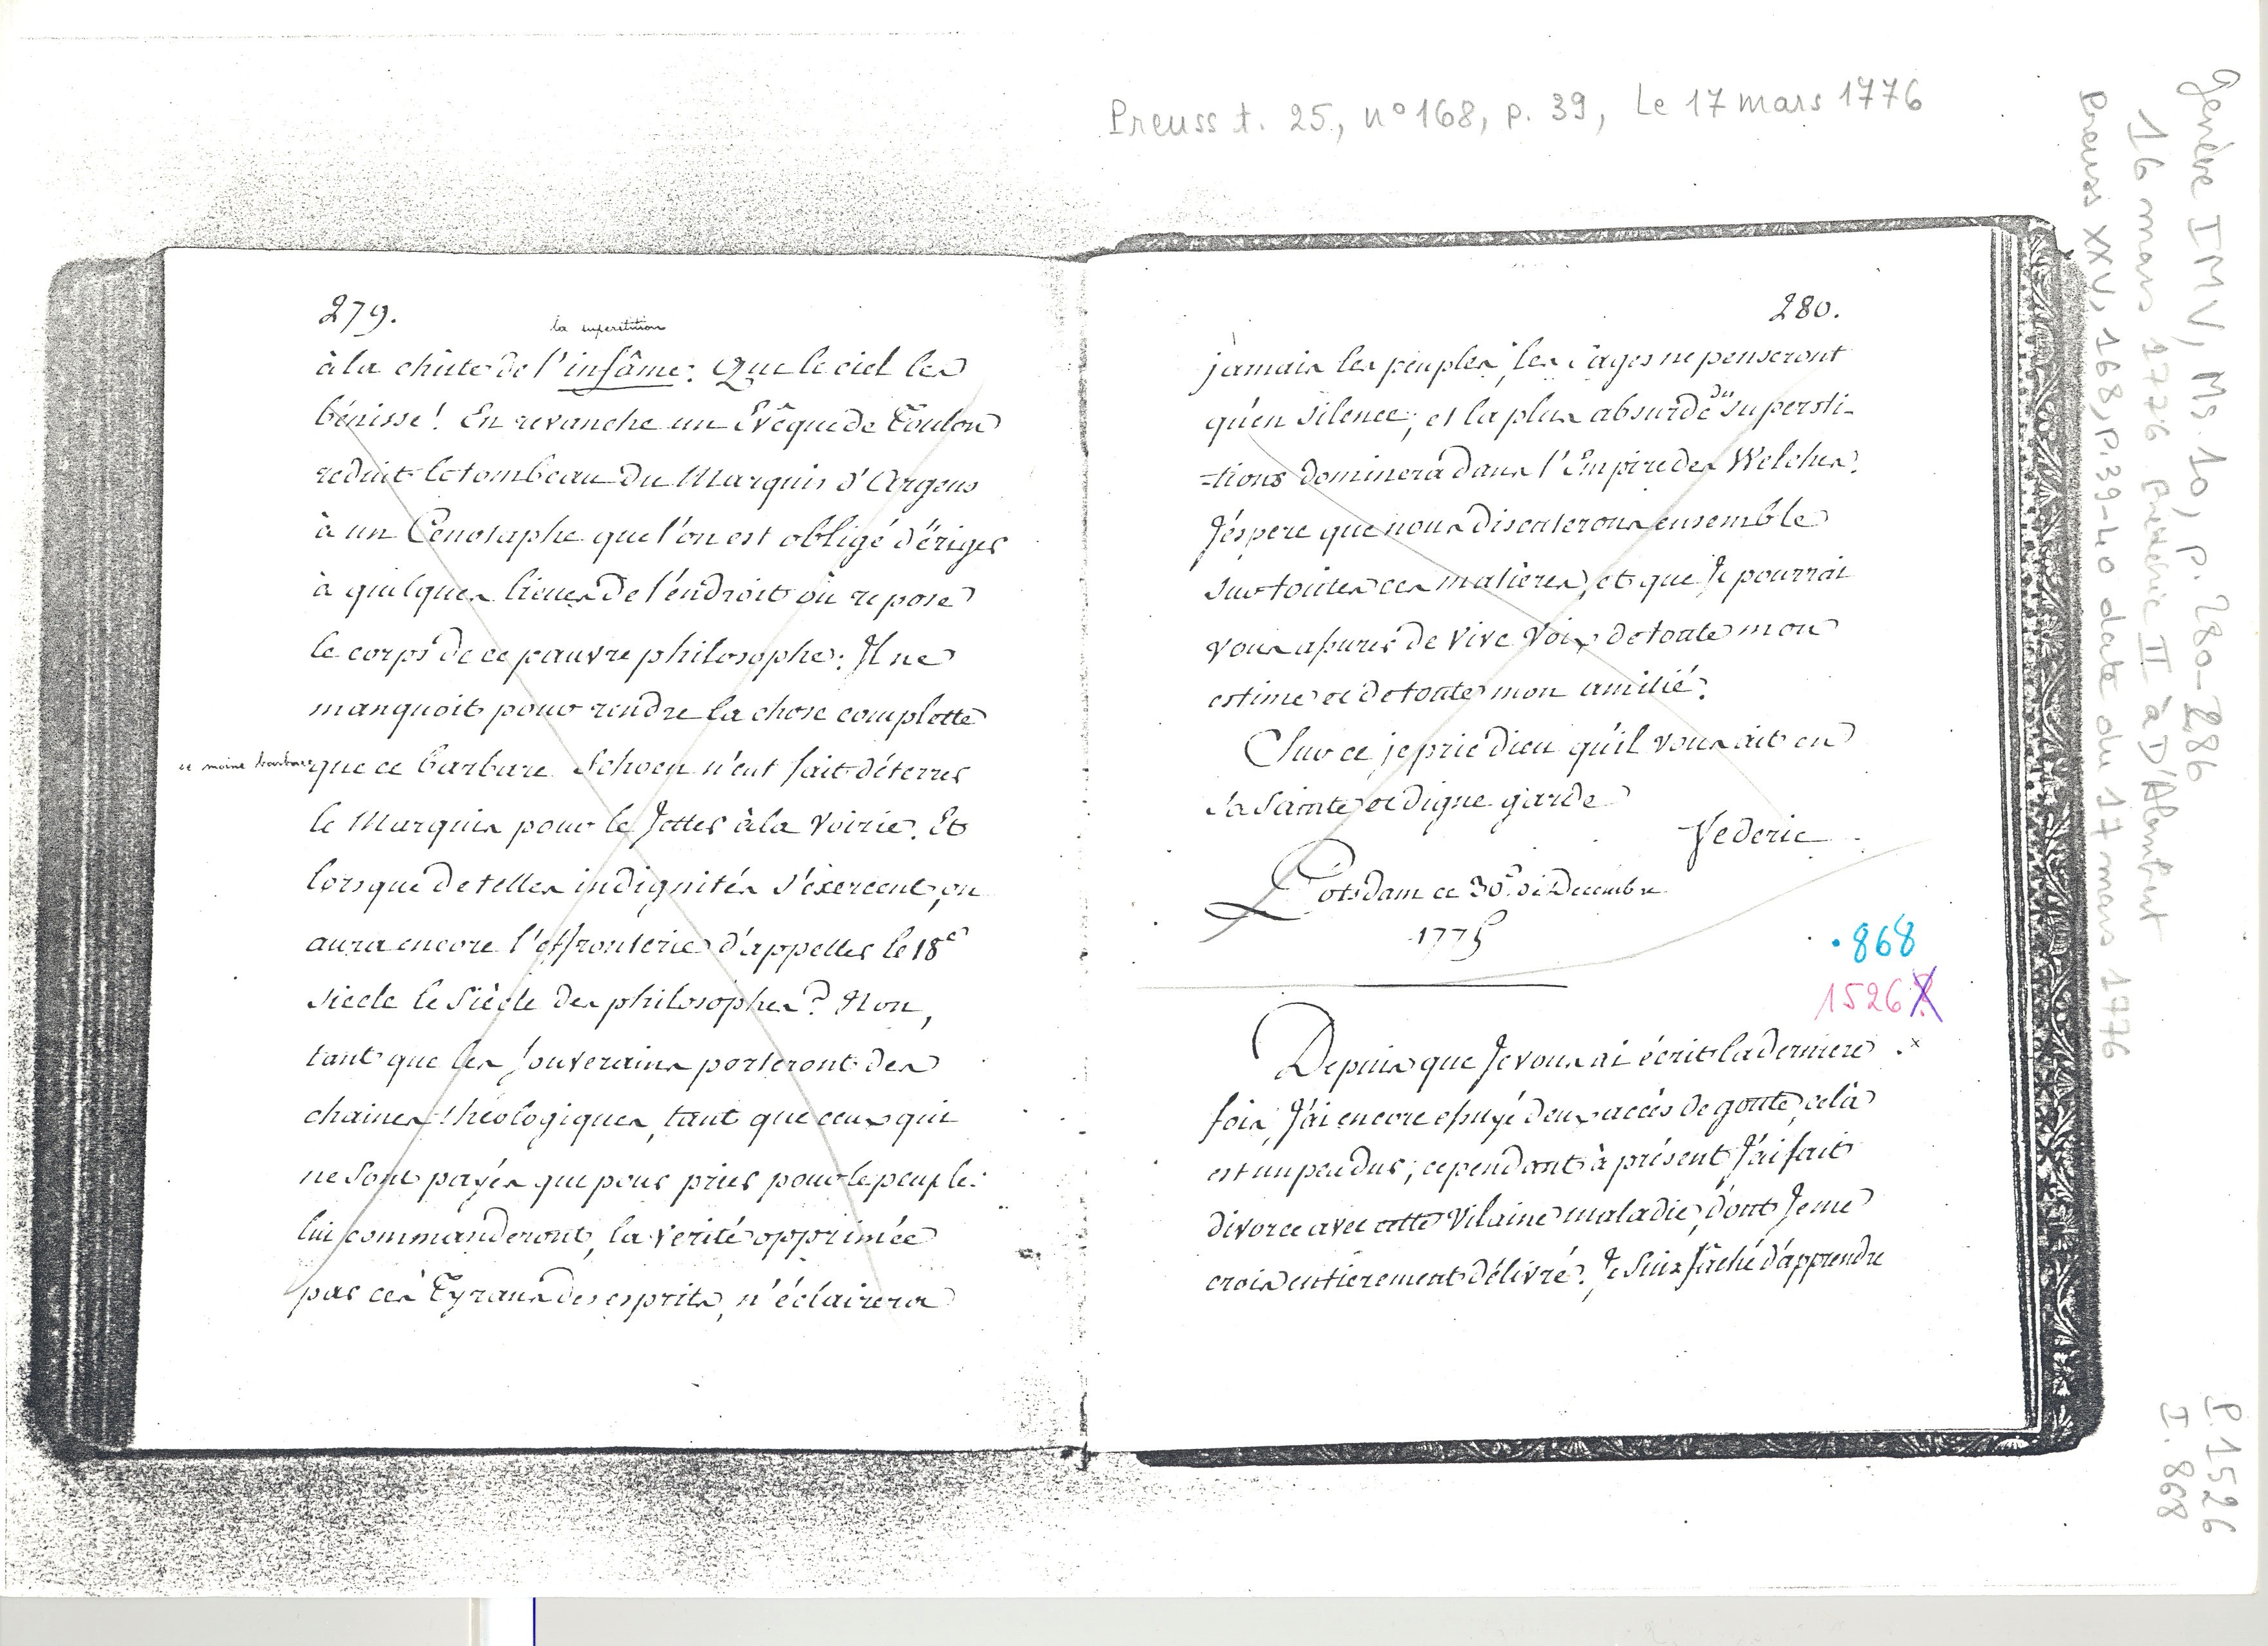 Preuss t. 25, n° 168, p. 39, Le 17 mars 1776
279.
la superstition
à la chûte de l'infâme: Que le ciel les
bénisse! En revanche un Evêque de Toulon
reduit le tombeau du Marquis d'Argens
à un Cenotaphe que l'on est obligé d'ériger
à quelques lieues de l'endroit où repose
le corps de ce pauvre philosophe: Il ne
manquoit pour rendre la chose complette
ce moine barbare
que ce barbare Schoen n'eut fait déterrer
le Marquis pour le Jetter à la Voirie. Et
lorsque de telles indignités s'éxercent, on
aura encore l'effronterie d'appeller le 18e
siecle le Siècle des philosophes? Non,
tant que les Souverains porteront des
chaines théologiques, tant que ceux qui
ne sont payés que pour prier pour le peuple
lui commanderont, la verité opprimée
par ces Tyrans des esprits, n'éclairera
280.
jamais les peuples, les sages ne penseront
qu'en silence; et la plus absurde du supersti-
=tions dominera dans l'Empire des Welches.
J'éspere que nous discuterons ensemble
sur toutes ces matieres, et que Je pourrai
vous assurer de vive voix de toute mon
estime et de toute mon amitié.
Sur ce je prie dieu qu'il vous ait en
sa Sainte et digne garde
Féderic
Potsdam ce 30e de Decembre
1775
.868
1526?
Depuis que Je vous ai écrit la derniere .x
fois, J'ai encore essuyé deux accès de goute, celà
est un peu dur; cependant à présent J'ai fait
divorce avec cette vilaine maladie, dont Je me
crois entierement délivré. Je Suis fâché d'apprendre
Genève IMV, Ms. 10, p. 280-286
16 mars 1776 Frédéric II à D'Alembert
Preuss XXV, 168, p. 39-40 date du 17 mars 1776
P 1526
I. 868